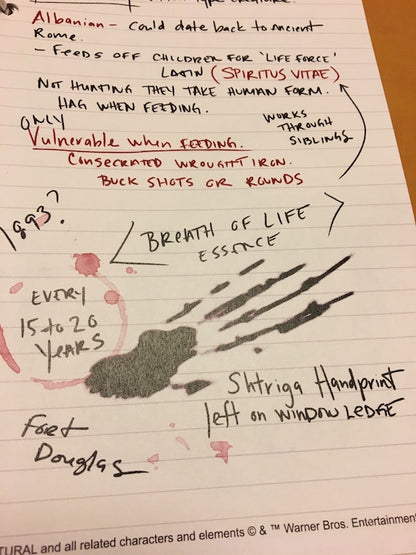 Albanian - could date back to ancient
Rome.
- Feeds off children for 'life force'
Latin (Spiritus Vitae)
Not hunting they take human form.
Hag when feeding.
Only
Vulnerable when feeding.
Consecrated wrought iron.
Buck shots or rounds
Works
through
siblings
1993?
Breath of life
essence
Every
15 to 20
years
Shtriga Handprint
left on window ledge
Fort
Douglas
TURAL and all related characters and elements © & ™ Warner Bros. Entertainment